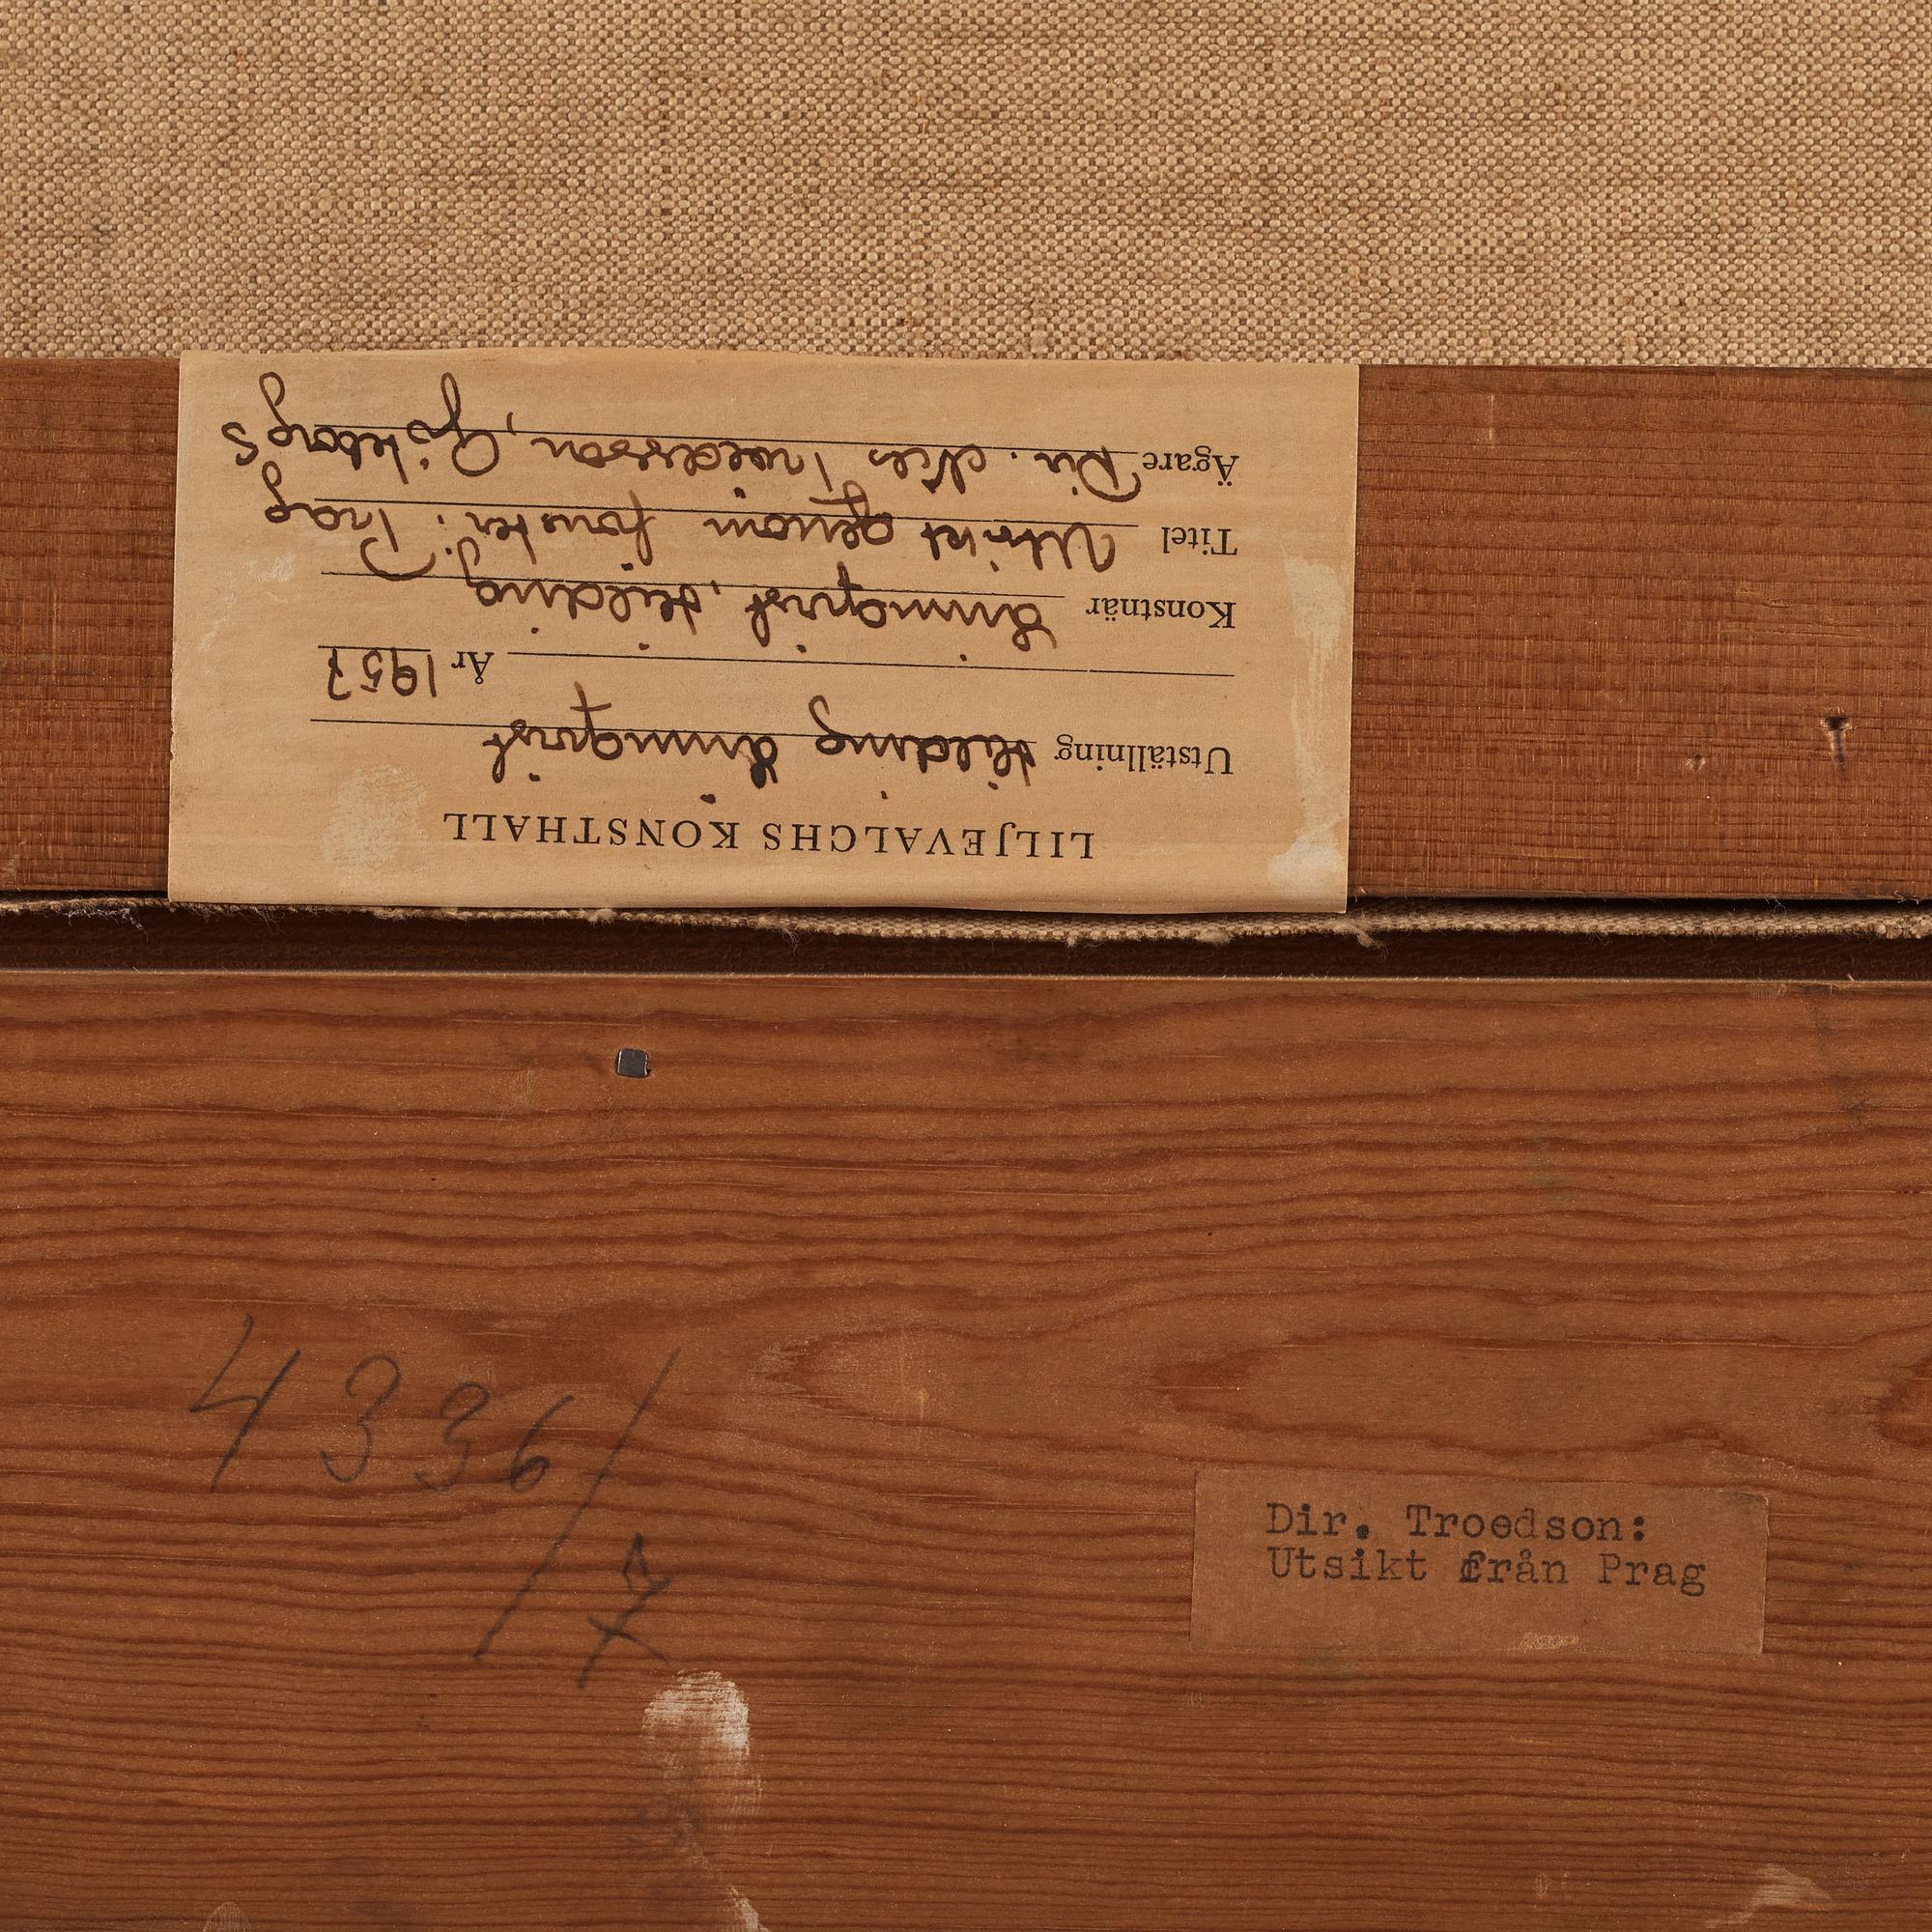 LILJEVALCHS KONSTHALL
Utställning Hilding Linnqvist
År 1957
Konstnär Linnqvist, Hilding
Titel Utsikt genom fönster: Prag
Ägare Dir. Nils Troedsson, Göteborg S
4336/
7
Dir. Troedson:
Utsikt från Prag